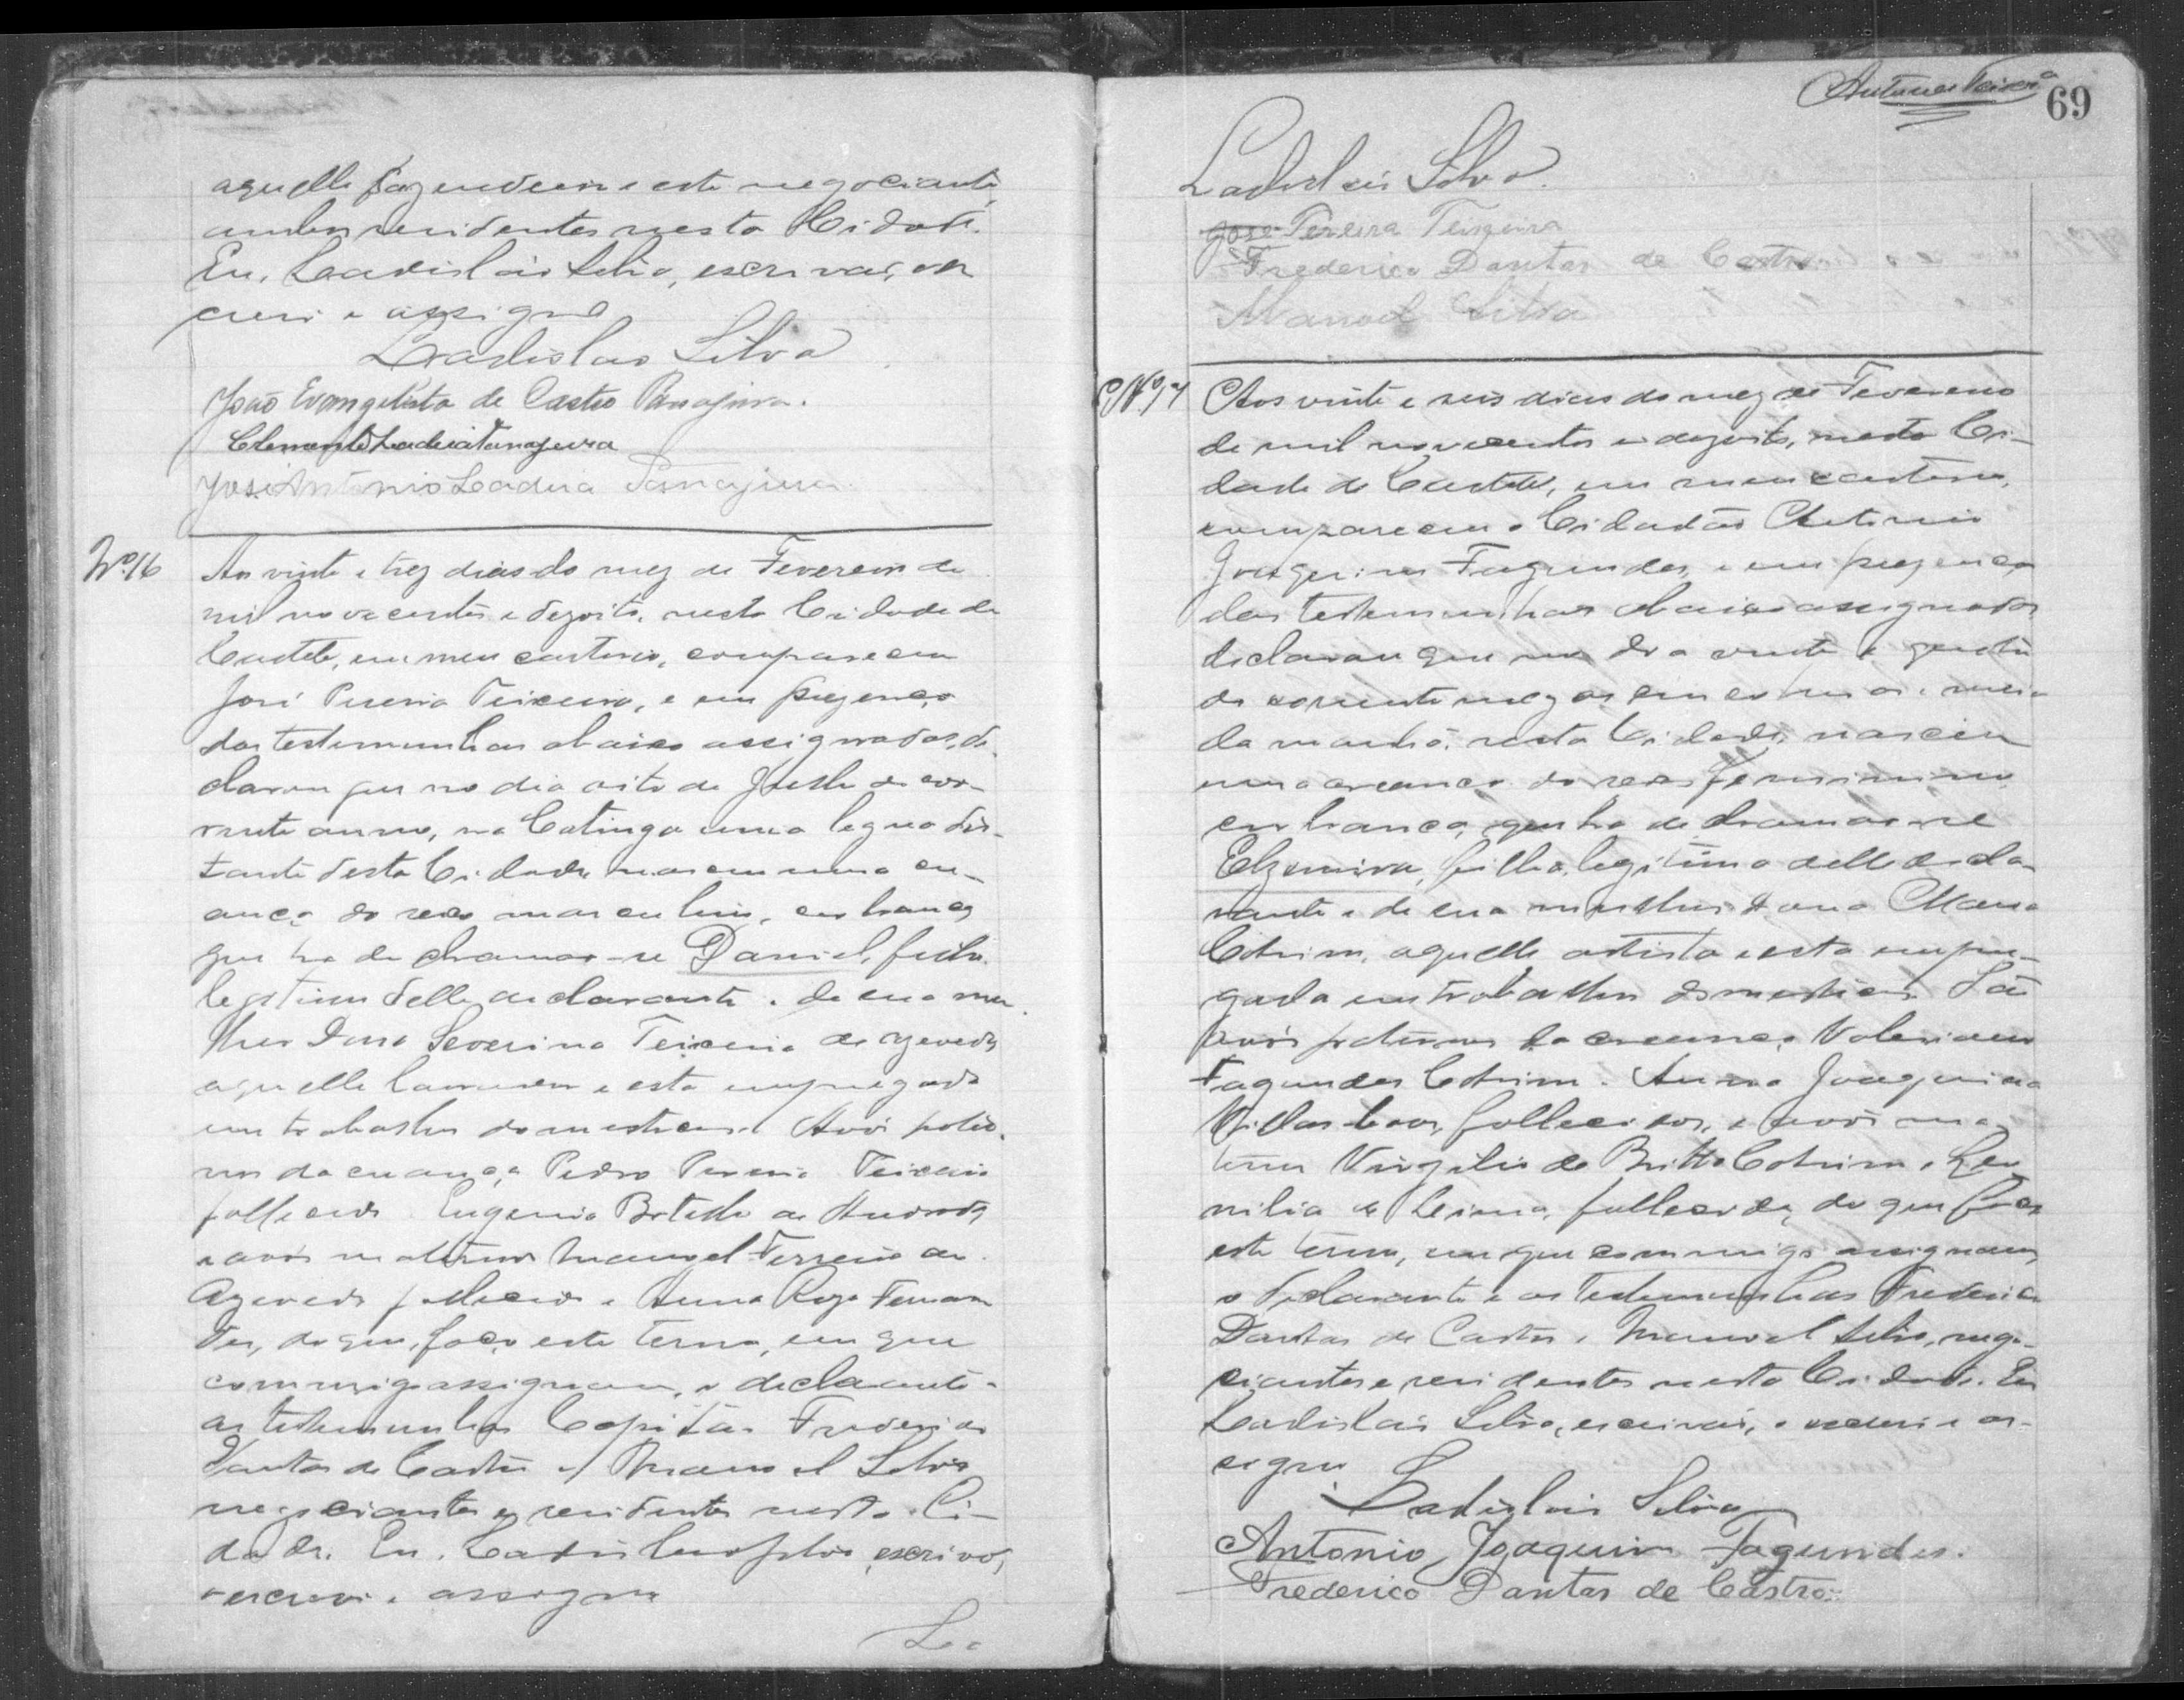 aquelle fazendeiro e este negociante,
ambos residentes nesta Cidade.
Eu, Ladisláo Silva, escrivão, o es
crevi e assigno
Ladislao Silva
João Evangelista de Castro Tanajura.
Clemente Ladeia Tanajura
José Antonio Ladeia Tanajura
Nº 16
Aos vinte e trez dias do mez de Fevereiro de
mil novecentos e dezoito, nesta Cidade de
Caeteté, em meu cartorio, compareceu
José Pereira Teixeira, e em prezença
das testemunhas abaixo assignadas, de
clarou que no dia oito de do cor-
rente anno, na Catinga uma legua dis-
tante desta Cidade nasceu uma cri-
ança do sexo masculino, côr branca
que ha de chamar-se Daniel, filho
legitimo delle declarante e de sua mu
lher Dona Severina Teixeira de Azevedo,
aquelle lavrador e esta empregada
em trabalhos domesticos. Avós pater-
nos da criança Pedro Pereira Teixeira
fallecido Eugenia Botelho de Andrade,
e avós maternos Manoel Ferreira de
Azevedo fallecido e Anna Roza Fernan
des, do que, faço este termo, em que
commigo assignam, o declarante e
as testemunhas Capitão Frederico
Dantas de Castro e Manoel Silva
negociantes e residentes nesta Ci-
dade. Eu, Ladislao Silva, escrivão,
o escrevi e assigno
La
Antunes Teixeira
69
Ladislao Silva.
José Pereira Teixeira
Frederico Dantas de Castro
Manoel Silva
Nº 17
Aos vinte e seis dias do mez de Fevereiro
de mil novecentos e dezoito, nesta Ci-
dade de Caeteté, em meu cartorio,
compareceu o Cidadão Antonio
Joaquim Fagundes, e em prezença
das testemunhas abaixo assignadas
declarou que no dia vinte e quatro
do corrente mez as cinco horas e meia
da manhã, nesta Cidade, nasceu
uma creança do sexo feminino
côr branca, que ha de chamar-se
Elzimira, filha legitima delle decla-
rante e de sua mulher Dona Maria
Cotrim, aquelle artista e esta empre-
gada em trabalhos domesticos. São
avós paternos da creança Valeriano
Fagundes Cotrim e Anna Joaquina
Villas boas, fallecidos, e avós ma-
ternos Virgilio de Britto Cotrim e
de Lima, fallecida, do que faço
este termo, em que commigo assignam,
o declarante e as testemunhas Frederico
Dantas de Castro e Manoel Silva, nego-
ciantes e residentes nesta Cidade. Eu
Ladislao Silva, escrivão, o escrevi e as-
signo
Ladislao Silva
Antonio Joaquim Fagundes.
Frederico Dantas de Castro.